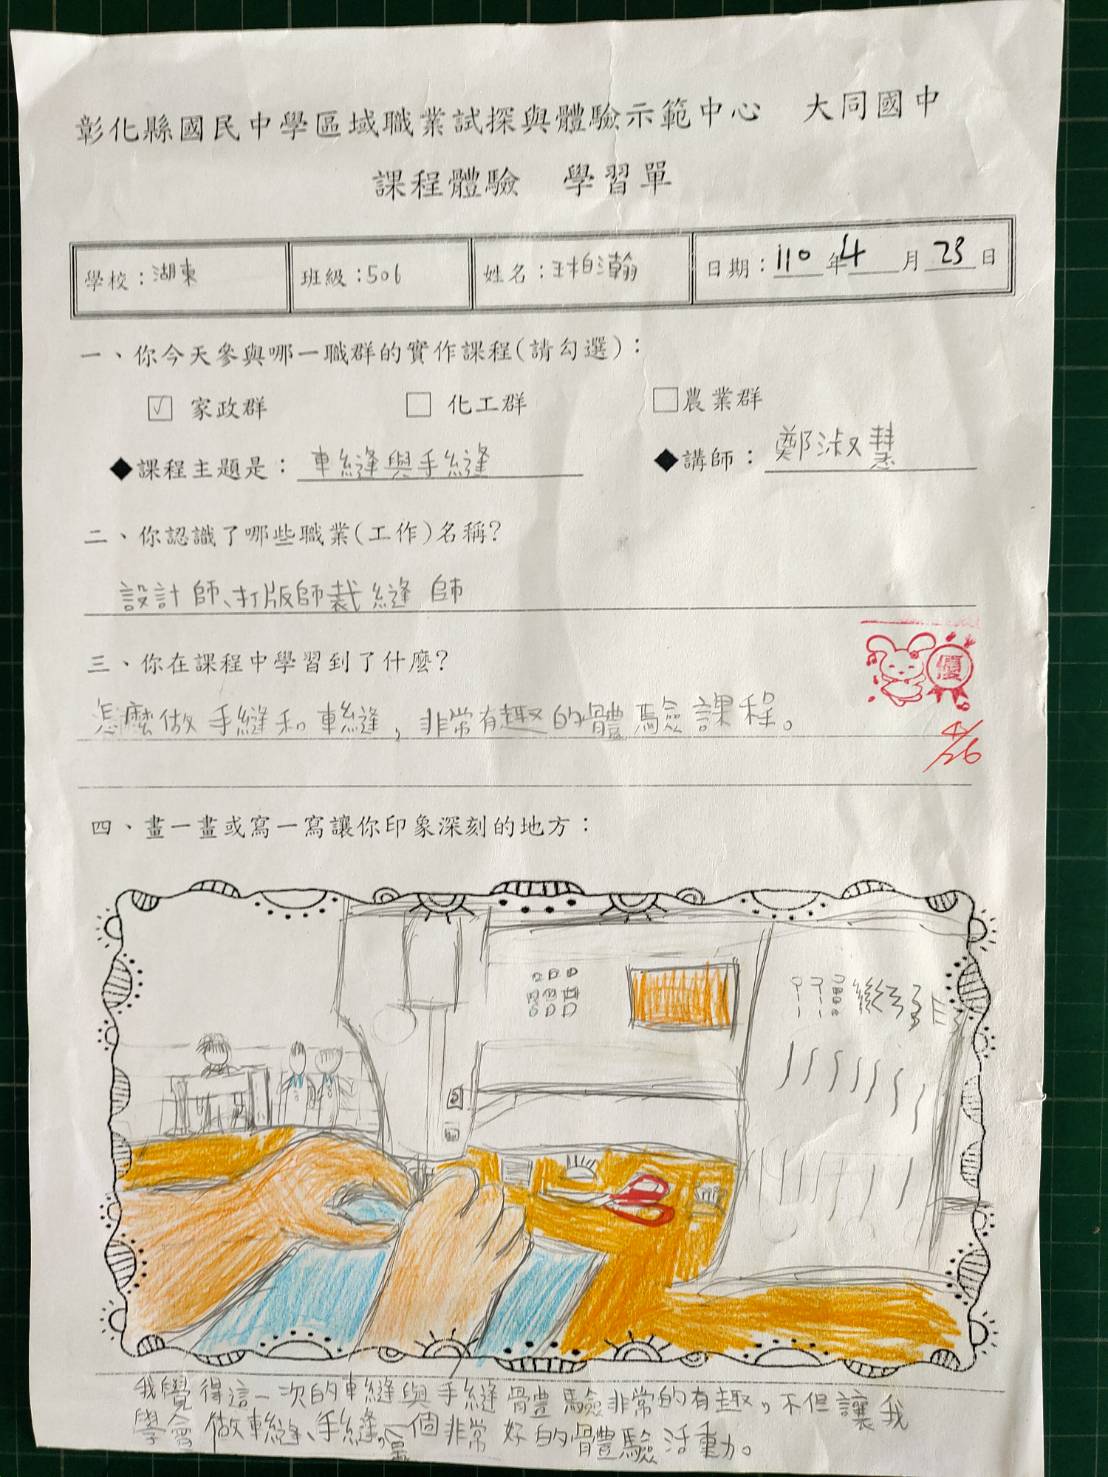 彰化縣國民中學區域職業試探與體驗示範中心 大同國中
課程體驗 學習單
學校：湖東 班級：506 姓名：王柏瀚 日期：110年4月23日
一、你今天參與哪一職群的實作課程(請勾選)：
☑ 家政群 □ 化工群 □農業群
◆課程主題是：車縫與手縫 ◆講師：鄭淑慧
二、你認識了哪些職業(工作)名稱?
設計師、打版師裁縫師
三、你在課程中學習到了什麼?
優
怎麼做手縫和車縫，非常有趣的體驗課程。
4/26
四、畫一畫或寫一寫讓你印象深刻的地方：
我覺得這一次的車縫與手縫體驗非常的有趣，不但讓我
學會做車縫、手縫，還是一個非常好的體驗活動。